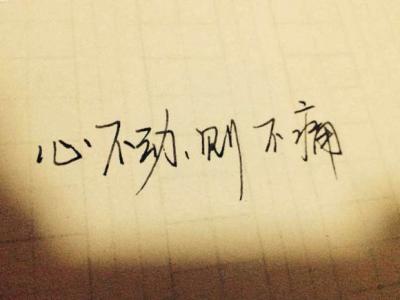 心不动、则不痛